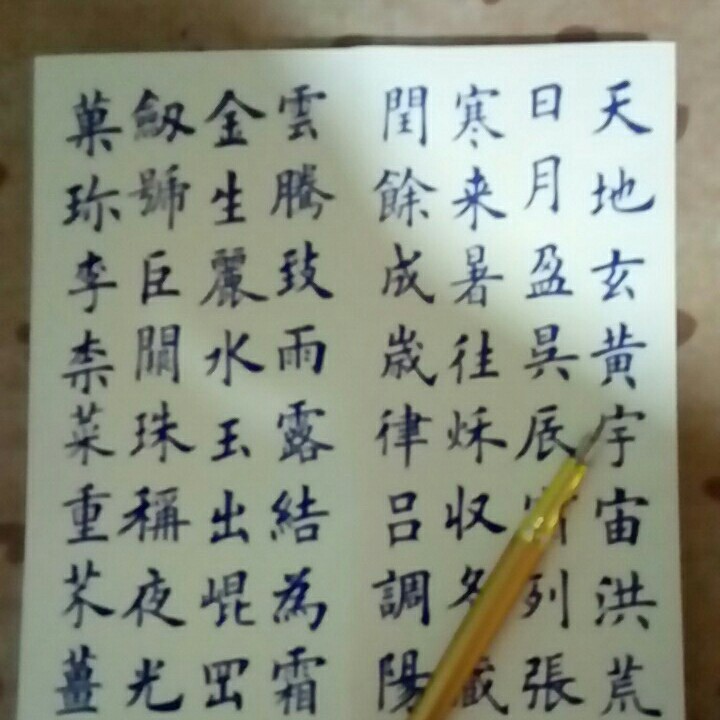 天地玄黄宇宙洪荒
日月盈昃辰列張
寒来暑往秋収冬藏
閏餘成歲律呂調陽
雲騰致雨露結為霜
金生麗水玉出崐岡
劔號巨闕珠稱夜光
菓珍李柰菜重芥薑